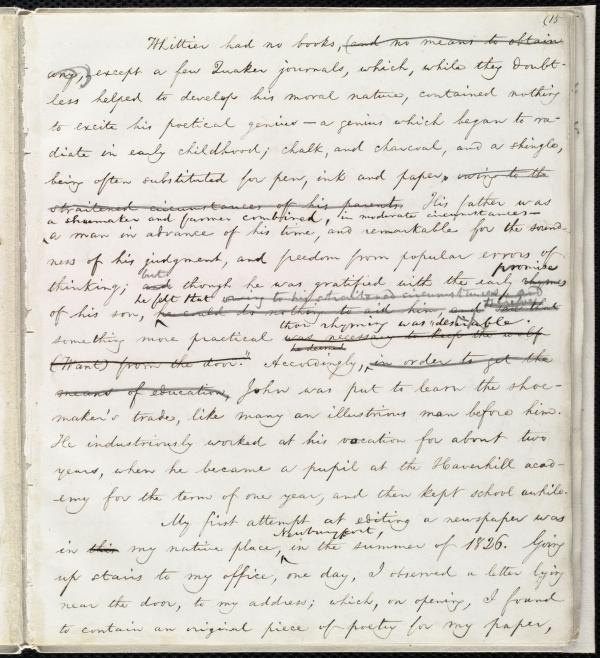 (15
Whittier had no books, (and no means to obtain
any,) except a few Quaker journals, which, while they doubt-
less helped to develop his moral nature, contained nothing
to excite his poetical genius — a genius which began to ra-
diate in early childhood; chalk, and charcoal, and a shingle,
being often substituted for pen, ink and paper, owing to the
straitened circumstances of his parents. His father was
a shoemaker and farmer combined, in moderate circumstances—
a man in advance of his time, and remarkable for the sound-
ness of his judgment, and freedom from popular errors of
but promise
thinking; and though he was gratified with the early rhymes
he felt that owing to his straitened circumstances
of his son, he could do nothing to aid him, and
tho' rhyming was desirable.
something more practical was necessary to keep the wolf
he deemed
(Want) from the door." Accordingly, in order to get the
means of education, John was put to learn the shoe-
maker's trade, like many an illustrious man before him.
He industriously worked at his vocation for about two
years, when he became a pupil at the Haverhill acad-
emy for the term of one year, and then kept school awhile.
My first attempt at editing a newspaper was
Newburyport,
in this my native place, in the summer of 1826. Going
up stairs to my office, one day, I observed a letter lying
near the door, to my address; which, on opening, I found
to contain an original piece of poetry for my paper,